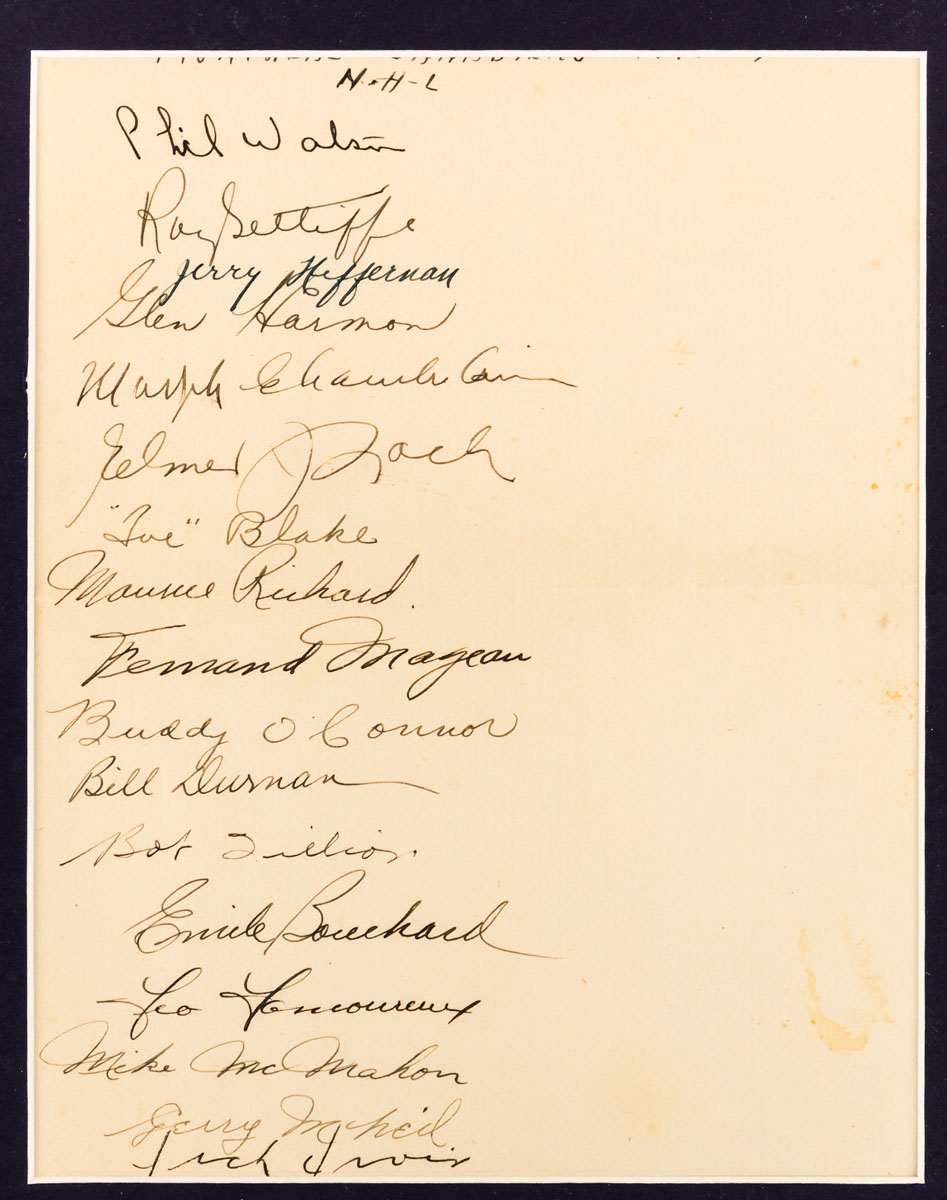 N-H-L
Phil Watson
Ray Getliffe
Jerry Heffernan
Glen Harmon
Murph Chamberlain
Elmer J Lach
"Toe" Blake
Maurice Richard.
Fernand Majeau
Buddy O'Connor
Bill Durnan
Bob Fillion
Emile Bouchard
Leo Lamoureux
Mike McMahon
Gerry McNeil
Dick Irvin